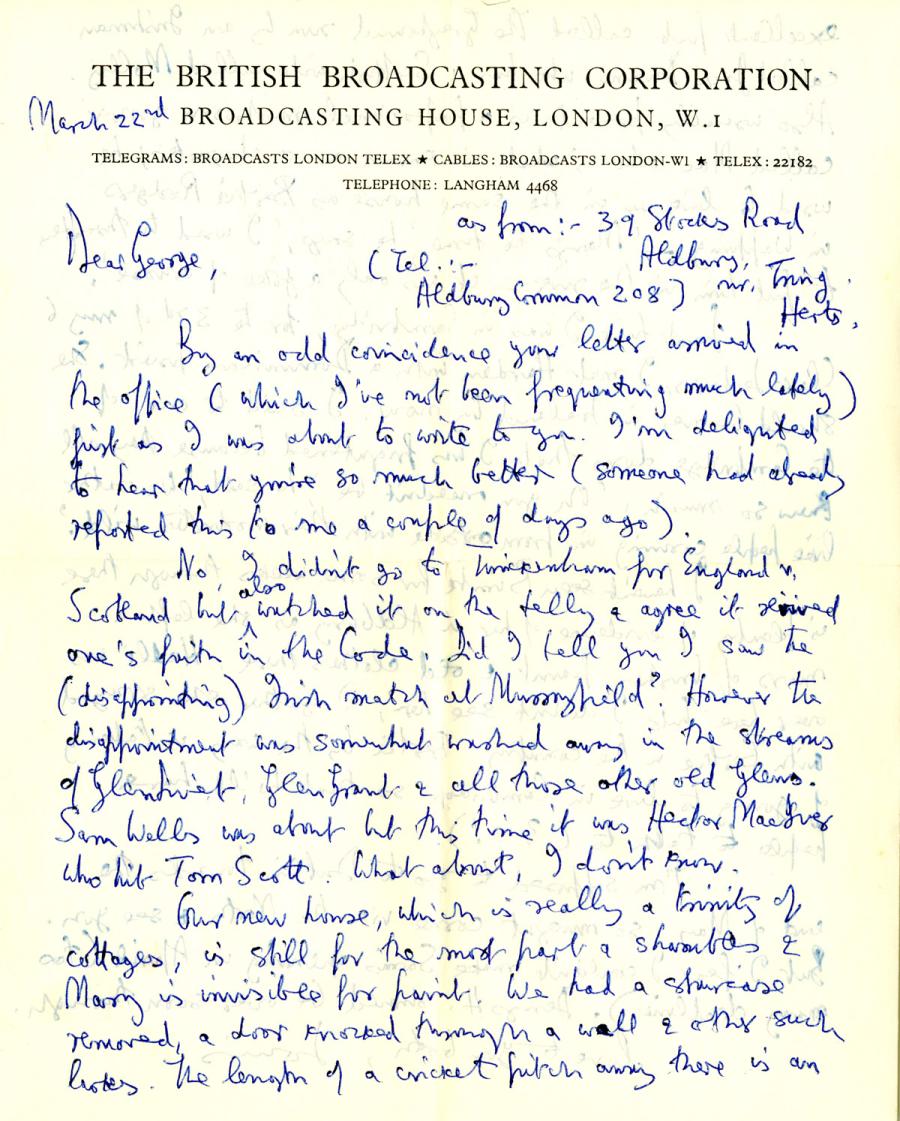 THE BRITISH BROADCASTING CORPORATION
March 22nd BROADCASTING HOUSE, LONDON, W.1
TELEGRAMS: BROADCASTS LONDON TELEX ★ CABLES: BROADCASTS LONDON-W1 ★ TELEX: 22182
TELEPHONE: LANGHAM 4468
as from:- 39 Stocks Road
Dear George, (Tel.:- Aldbury,
Aldbury Common 208) nr. Tring,
Herts,
By an odd coincidence your letter arrived in
the office (which I've not been frequenting much lately)
just as I was about to write to you. I'm delighted
to hear that you're so much better (someone had already
reported this to me a couple of days ago).
No, I didn't go to Twickenham for England v.
Scotland but also watched it on the telly & agree it revived
one's faith in the Code. Did I tell you I saw the
(disappointing) Irish match at Murrayfield? However the
disappointment was somewhat washed away in the streams
of Glenlivet, Glen Grant & all those other old Glens.
Sam Wells was about but this time it was Hector MacIver
who hit Tom Scott. What about, I don't know.
Our new house, which is really a trinity of
cottages, is still for the most part a shambles &
Mary is invisible for paint. We had a staircase
removed, a door knocked through a wall & other such
larks. The length of a cricket pitch away there is an